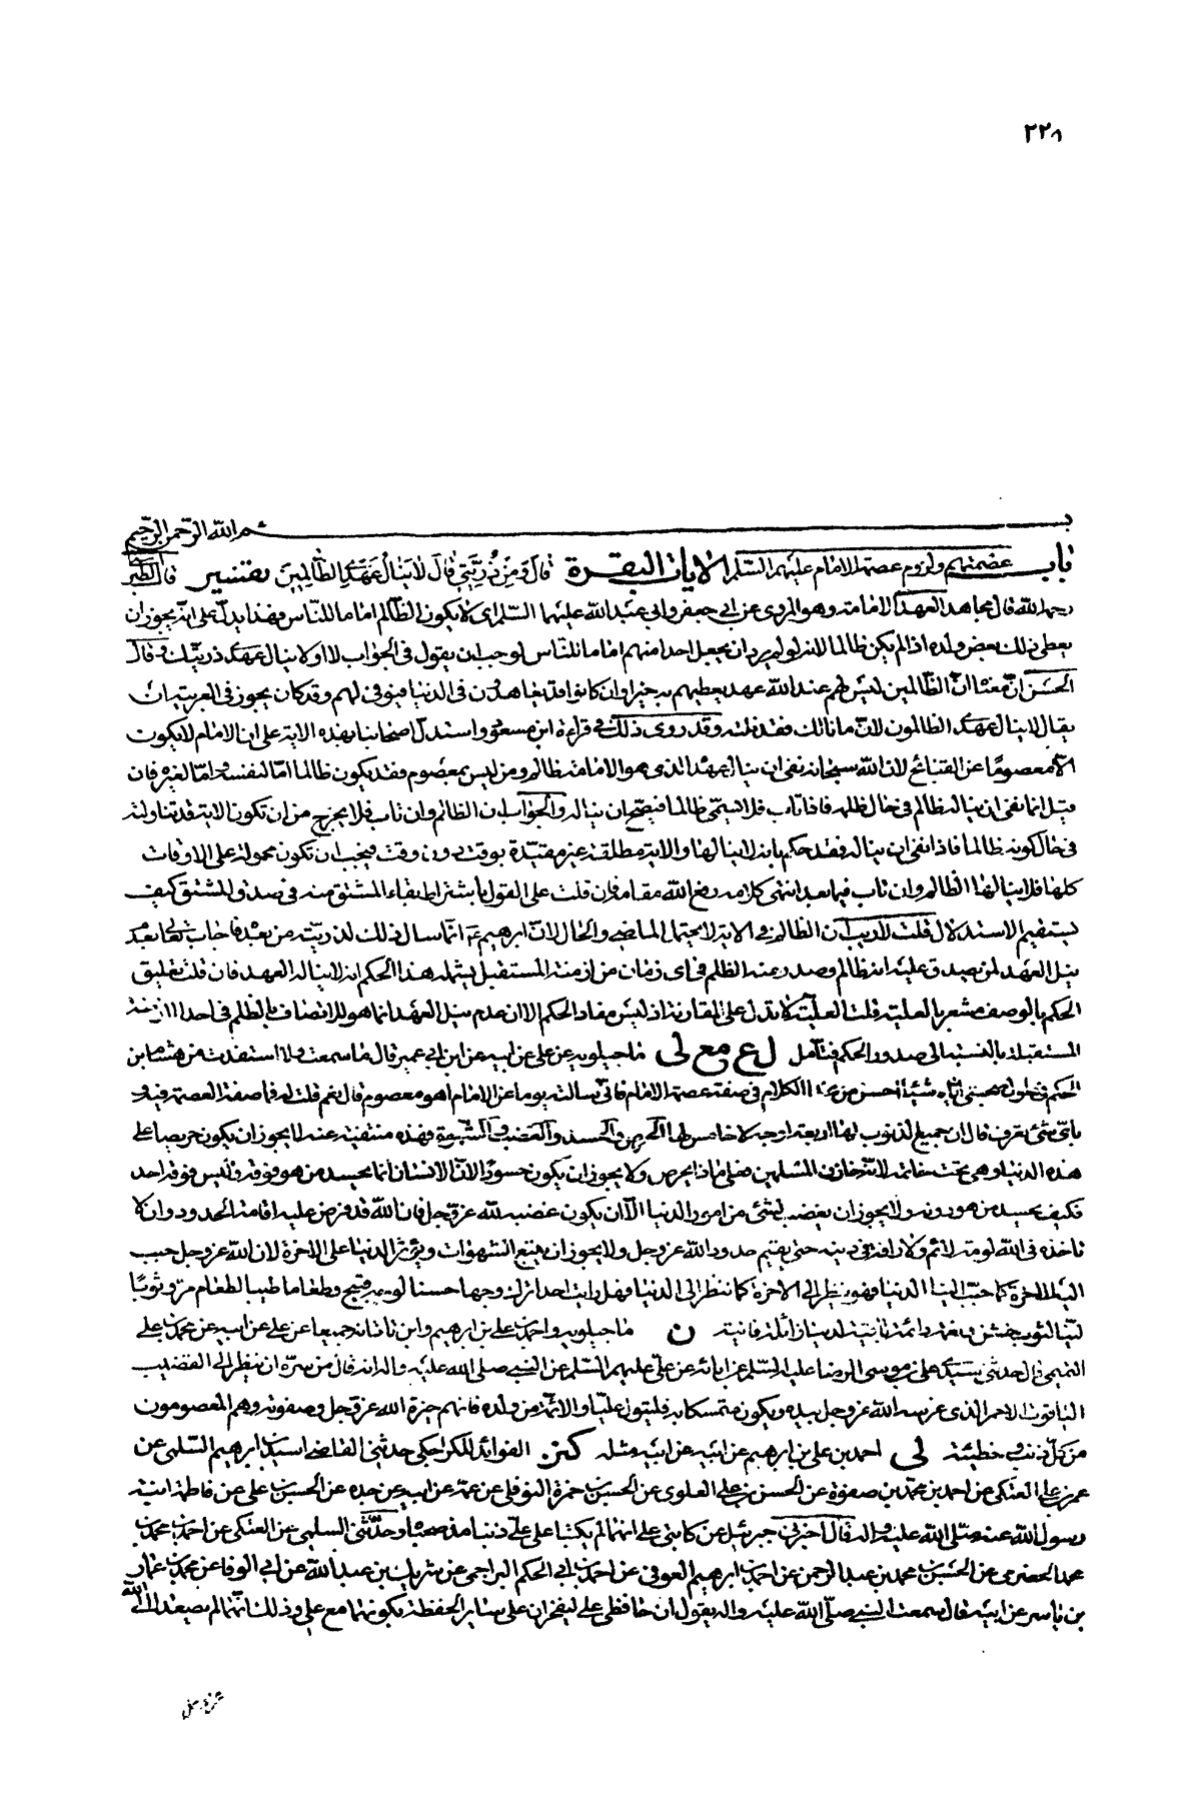 ٢٢٨
بسم الله الرحمن الرحيم
باب عصمتهم ولزوم عصمة الامام عليهم السلم الايات البقرة قال ومن ذريتي قال لا ينال عهدي الظالمين تفسير قال الطبرسي
رحمه الله قال مجاهد العهد الامامة وهو المروى عن ابي جعفر وابي عبد الله عليهما السلم اى لا يكون الظالم اماما للناس فهذا يدل على انه يجوز ان
يعطى ذلك بعض ولده اذا لم يكن ظالما لانه لو لم يرد ان يجعل احدا منهم اماما للناس لوجب ان يقول في الجواب لا او لا ينال عهدي ذريتك وقال
الحسن ان معناه ان الظالمين ليس لهم عند الله عهد يعطيهم به خيرا وان كانوا قد يعاهدون في الدنيا فيوفى لهم وقد كان يجوز في العربية ان
يقال لا ينال عهدي الظالمون لان ما نالك فقد نلته وقد روى ذلك في قراءة ابن مسعود واستدل اصحابنا بهذه الاية على ان الامام لا يكون
الا معصوما عن القبائح لان الله سبحانه نفى ان ينال عهده الذى هو الامامة ظالم ومن ليس بمعصوم فقد يكون ظالما اما لنفسه واما لغيره فان
قيل انما نفى ان يناله ظالم في حال ظلمه فاذا تاب فلا يسمى ظالما فيصح ان يناله والجواب ان الظالم وان تاب فلا يخرج من ان تكون الاية قد تناولته
في حال كونه ظالما فاذا نفى ان يناله فقد حكم بانه لا ينالها والاية مطلقة غير مقيدة بوقت دون وقت فيجب ان تكون محمولة على الاوقات
كلها فلا ينالها الظالم وان تاب فيما بعد انتهى كلامه رفع الله مقامه فان قلت على القول باشتراط بقاء المشتق منه في صدق المشتق كيف
يستقيم الاستدلال قلت لا ريب ان الظالم في الاية لا يحتمل الماضي والحال لان ابرهيم ع انما سال ذلك لذريته من بعده فاجاب تعالى بعدم
نيل العهد لمن يصدق عليه انه ظالم وصدر عنه الظلم في اى زمان من ازمنة المستقبل يشمله هذا الحكم انه لا يناله العهد فان قلت تعليق
الحكم بالوصف مشعر بالعلية قلت العلية لا تدل على المقارنة اذ ليس مفاد الحكم الا ان عدم نيل العهد انما هو للاتصاف بالظلم في احد الازمنة
المستقبلة بالنسبة الى صدور الحكم فتامل ل ع مع لى ماجيلويه عن علي عن ابيه عن ابن ابي عمير قال ما سمعت ولا استفدت من هشام بن
الحكم في طول صحبتي اياه شيئا احسن من هذا الكلام في صفة عصمة الامام فاني سالته يوما عن الامام اهو معصوم قال نعم قلت له فما صفة العصمة فيه و
باى شئ تعرف قال ان جميع الذنوب لها اربعة اوجه لا خامس لها الحرص والحسد والغضب والشهوة فهذه منتفية عنه لا يجوز ان يكون حريصا على
هذه الدنيا وهى تحت خاتمه لانه خازن المسلمين فعلى ماذا يحرص ولا يجوز ان يكون حسودا لان الانسان انما يحسد من هو فوقه وليس فوقه احد
فكيف يحسد من هو دونه ولا يجوز ان يغضب لشئ من امور الدنيا الا ان يكون غضبه لله عز وجل فان الله قد فرض عليه اقامة الحدود وان لا
تاخذه في الله لومة لائم ولا رافة في دينه حتى يقيم حدود الله عز وجل ولا يجوز ان يتبع الشهوات ويؤثر الدنيا على الاخرة لان الله عز وجل حبب
اليه الاخرة كما حبب الينا الدنيا فهو ينظر الى الاخرة كما ننظر الى الدنيا فهل رايت احدا ترك وجها حسنا لوجه قبيح وطعاما طيبا لطعام مر وثوبا
لينا لثوب خشن ونعمة دائمة باقية لدنيا زائلة فانية ن ماجيلويه واحمد بن علي بن ابرهيم وابن ناتانه جميعا عن علي عن ابيه عن محمد بن علي
التميمي قال حدثني سيدي علي بن موسى الرضا عليه السلم عن ابائه عن علي عليهم السلم عن النبي صلى الله عليه واله انه قال من سره ان ينظر الى القضيب
الياقوت الاحمر الذى غرسه الله عز وجل بيده ويكون متمسكا به فليتول عليا والائمة من ولده فانهم خيرة الله عز وجل وصفوته وهم المعصومون
من كل ذنب وخطيئة لى احمد بن علي بن ابرهيم عن ابيه عن ابيه مثله كنز الفوائد للكراجكي حدثني القاضي اسد بن ابرهيم السلمي عن
عمر بن علي العتكي عن احمد بن محمد بن صفوة عن الحسن بن علي العلوى عن الحسن بن حمزة النوفلي عن عمه عن ابيه عن جده عن الحسن بن علي عن فاطمة ابنة
رسول الله عنه صلى الله عليه واله قال اخبرني جبرئيل عن كاتبي علي انهما لم يكتبا على علي ذنبا مذ صحباه وحدثني السلمي عن العتكي عن احمد بن محمد بن
محمد الحضرمي عن الحسن بن محمد بن عبد الرحمن عن احمد بن ابرهيم العوفي عن احمد بن ابي الحكم البراجمي عن شريك بن عبد الله عن ابي الوفا عن محمد بن عمار
بن ياسر عن ابيه قال سمعت النبي صلى الله عليه واله يقول ان حافظى علي ليفخران على ساير الحفظة بكونهما مع علي وذلك انهما لم يصعدا الى الله
عز وجل